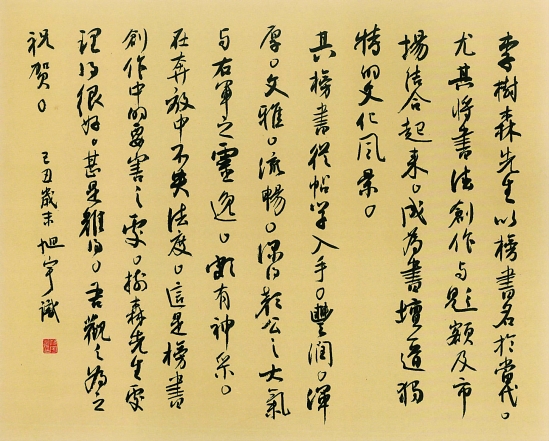 李樹森先生以榜書名於當代。
尤其將書法創作与題額及市
場结合起来。成為書壇一道獨
特的文化風景。
其榜書從帖学入手。豐润。渾
厚。文雅。流暢。深得顏公之大氣
与右軍之靈逸。頗有神采。
在奔放中不失法度。這是榜書
創作中的要害之處。樹森先生處
理得很好。甚是難得。吾觀之為之
祝贺。
己丑歲末旭宇識